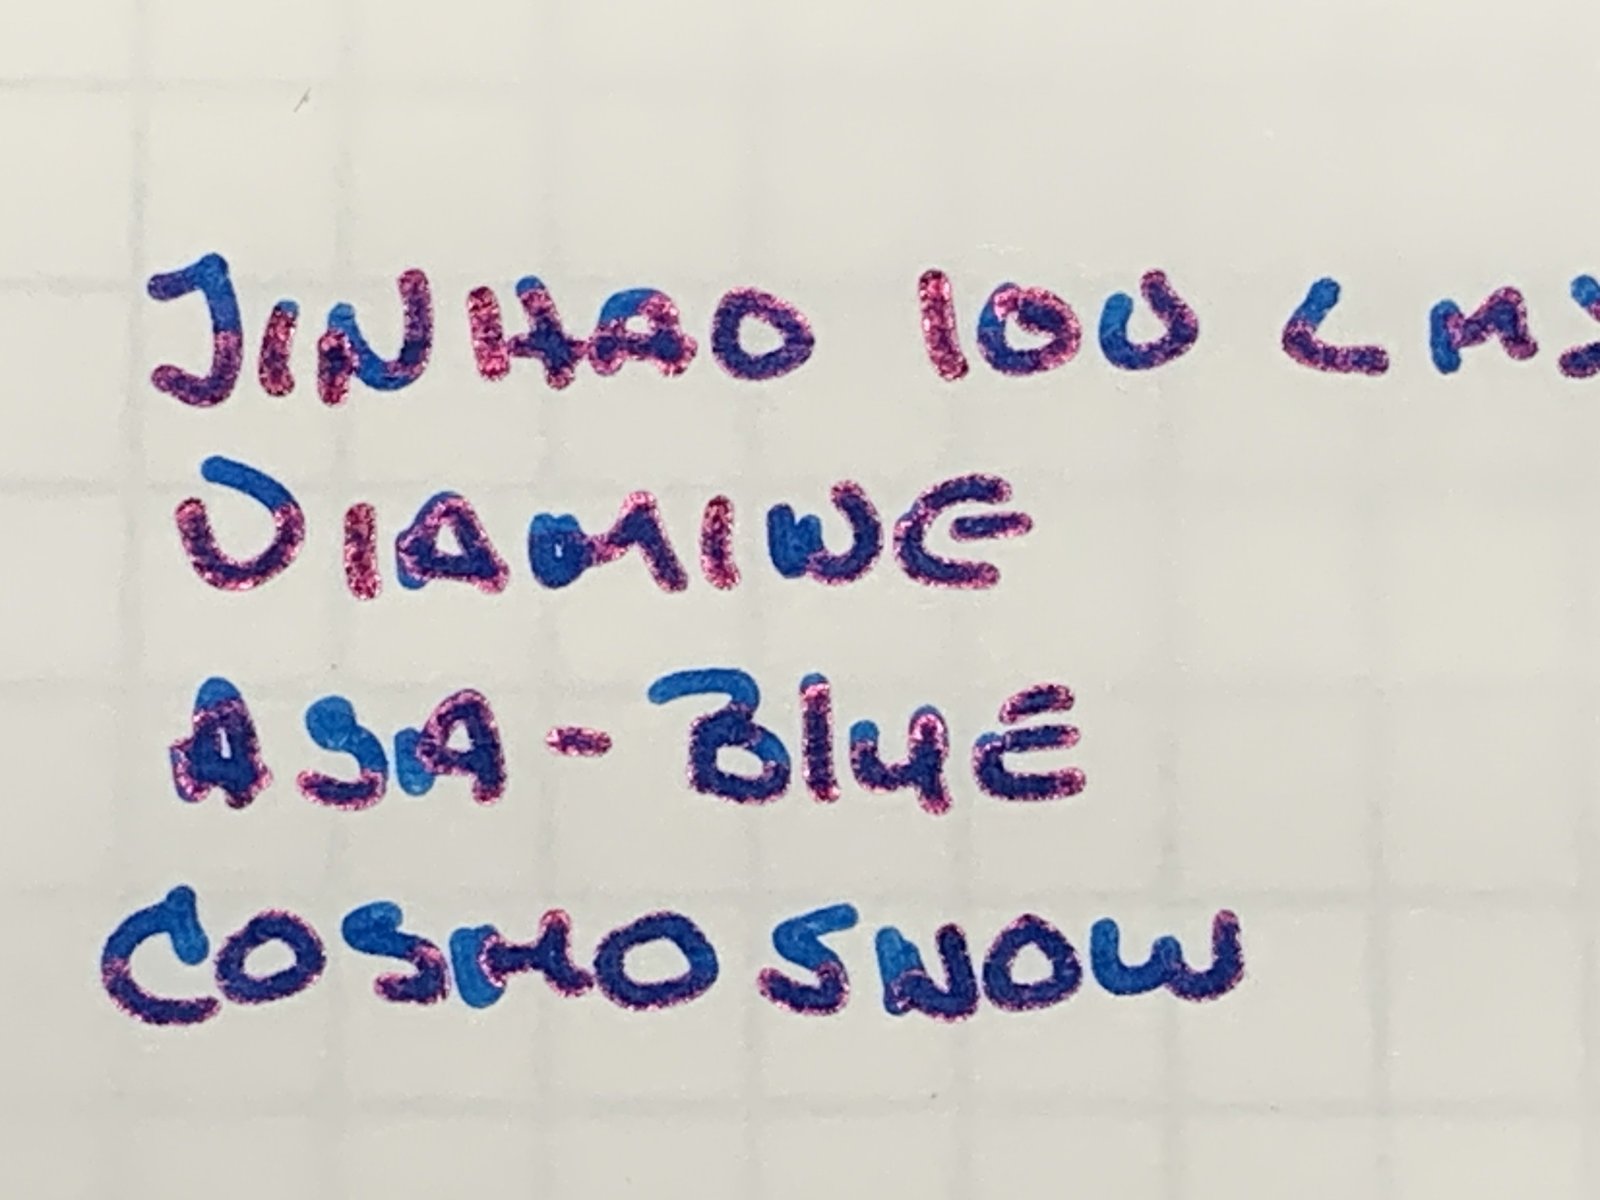 JINHAO 100 <M>
DIAMINE
ASA-BluE
COSMO SNOW